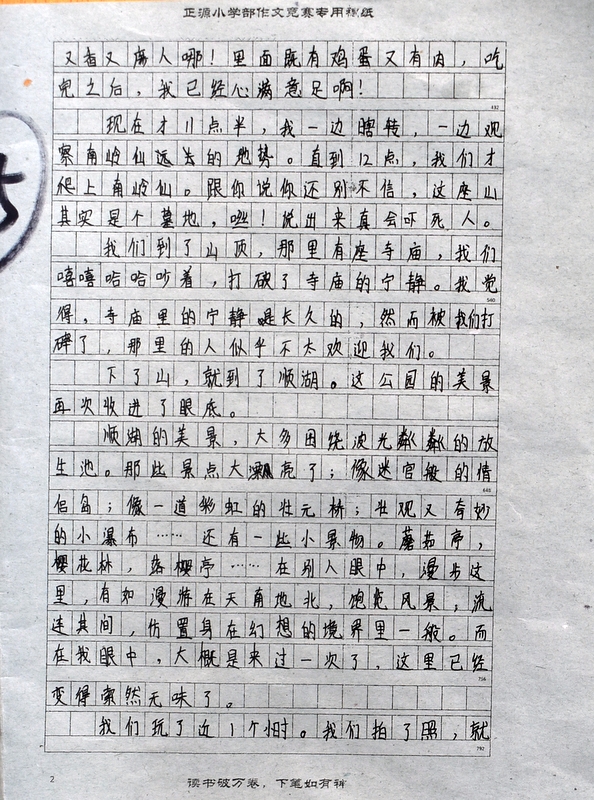 正源小学部作文竞赛专用稿纸
又香又腐人哪！里面既有鸡蛋又有肉，吃
完之后，我已经心满意足啊！
432
现在才11点半，我一边瞎转，一边观
察南岭仙远去的地势。直到12点，我们才
爬上南岭仙。跟你说你还别不信，这座山
其实是个墓地，咝！说出来真会吓死人。
我们到了山顶，那里有座寺庙，我们
嘻嘻哈哈吵着，打破了寺庙的宁静。我觉
540
得，寺庙里的宁静是长久的，然而被我们打
碎了，那里的人似乎不太欢迎我们。
下了山，就到了顺湖。这公园的美景
再次收进了眼底。
顺湖的美景，大多围绕波光粼粼的放
生池。那些景点大漂亮了；像迷宫般的情
648
侣岛；像一道彩虹的状元桥；壮观又有妙
的小瀑布……还有一些小景物。蘑菇亭，
樱花林，落樱亭……在别人眼中，漫步这
里，有如漫游在天南地北，饱览风景，流
连其间，仿置身在幻想的境界里一般。而
在我眼中，大概是来过一次了，这里已经
756
变得索然无味了。
我们玩了近1个小时。我们拍了照，就
792
2
读书破万卷，下笔如有神